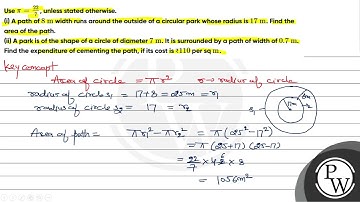 Use π = 22/7, unless stated otherwise.
(i) A path of 8 m width runs around the outside of a circular park whose radius is 17 m. Find the
area of the path.
(ii) A park is of the shape of a circle of diameter 7 m. It is surrounded by a path of width of 0.7 m.
Find the expenditure of cementing the path, if its cost is ₹110 per sq m.
Key concept
Area of circle = πr² r → radius of circle
radius of circle S₁ = 17+8 = 25m = r₁
radius of circle S₂ = 17 = r₂
S₁
17m
Area of path = πr₁² - πr₂² = π(25²-17²)
= π(25+17)(25-17)
= 22/7 × 42 × 8
= 1056m²
PW